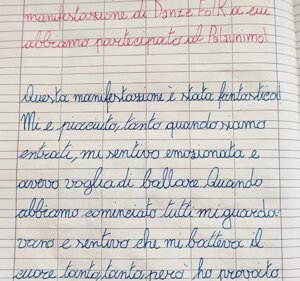 manifestazione di Danze Folk a cui
abbiamo partecipato al Palaunimol
Questa manifestazione è stata fantastica!
Mi è piaciuta, tanto quando siamo
entrati, mi sentivo emozionata e
avevo voglia di ballare. Quando
abbiamo cominciato tutti mi guarda-
vano e sentivo che mi batteva il
cuore tanto, tanto, però ho provato